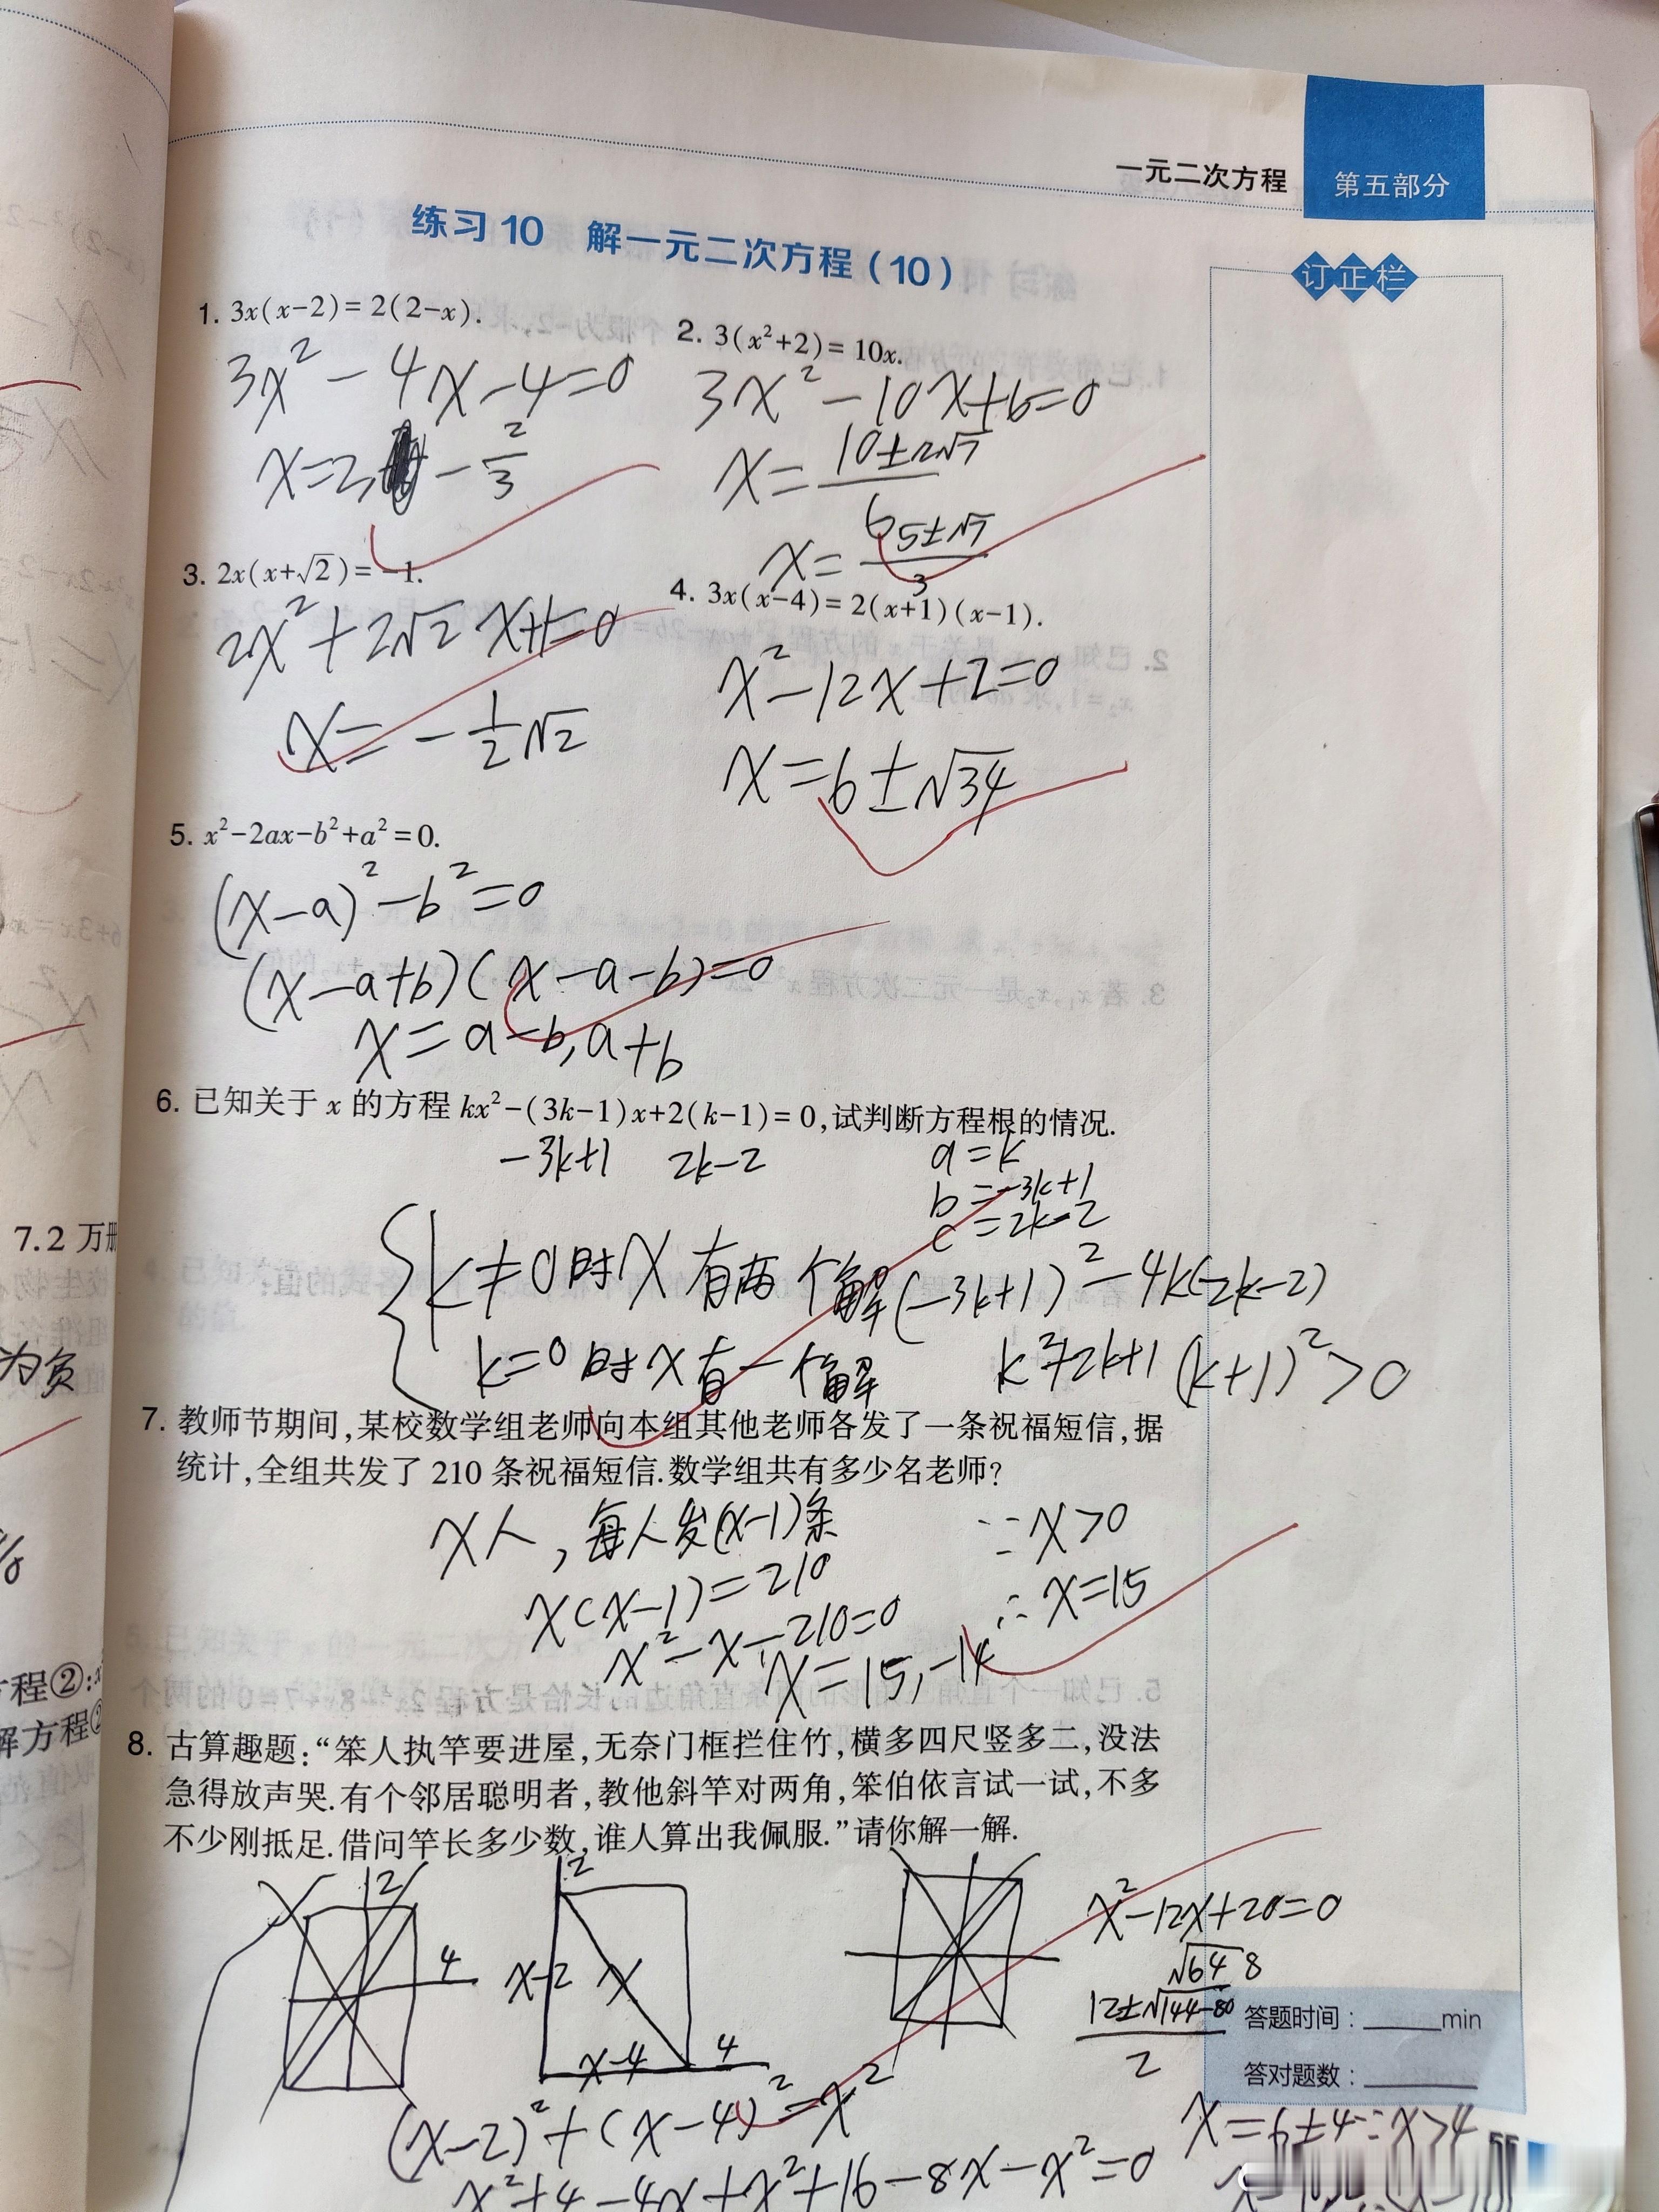 一元二次方程 第五部分
练习 10 解一元二次方程(10)
订正栏
1. 3x(x-2)=2(2-x).
3x²-4x-4=0
x=2, -2/3
2. 3(x²+2)=10x.
3x²-10x+6=0
x=(10±2√7)/6
x=(5±√7)/3
3. 2x(x+√2)=-1.
2x²+2√2x+1=0
x=-1/2√2
4. 3x(x-4)=2(x+1)(x-1).
x²-12x+2=0
x=6±√34
5. x²-2ax-b²+a²=0.
(x-a)²-b²=0
(x-a+b)(x-a-b)=0
x=a-b,a+b
6. 已知关于 x 的方程 kx²-(3k-1)x+2(k-1)=0,试判断方程根的情况.
-3k+1 2k-2
a=k
b=-3k+1
c=2k-2
k≠0时x有两个解
(-3k+1)²-4k(2k-2)
k=0时x有一个解
k²+2k+1 (k+1)²>0
7. 教师节期间,某校数学组老师向本组其他老师各发了一条祝福短信,据
统计,全组共发了 210 条祝福短信.数学组共有多少名老师?
x人,每人发(x-1)条
x(x-1)=210
x²-x-210=0
x=15,-14
∵x>0
∴x=15
8. 古算趣题:“笨人执竿要进屋,无奈门框拦住竹,横多四尺竖多二,没法
急得放声哭.有个邻居聪明者,教他斜竿对两角,笨伯依言试一试,不多
不少刚抵足.借问竿长多少数,谁人算出我佩服.”请你解一解.
2
4
2
x-2
x
x-4
4
(x-2)²+(x-4)²=x²
x²+4-4x+x²+16-8x-x²=0
x²-12x+20=0
√64 8
(12±√144-80)/2
x=6±4∵x>4
答题时间:______min
答对题数:______
7.2 万册
为负
程②:x
解方程②
6+3x=x